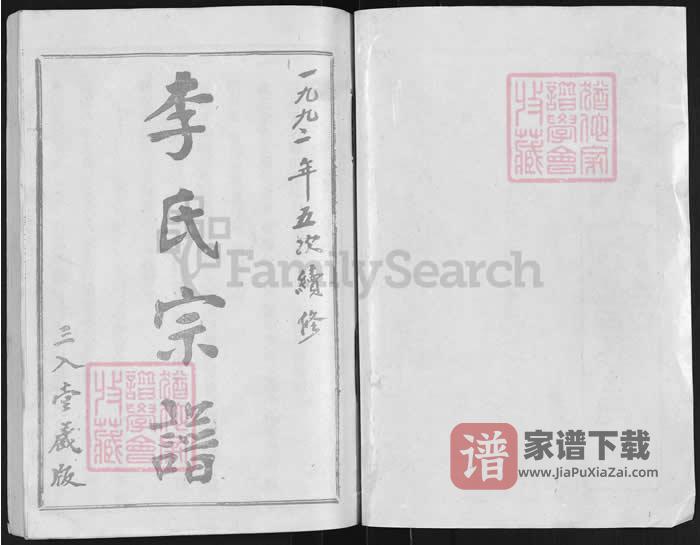 一九九二年五次續修
李氏宗譜
三入堂藏版
猶他家
譜學會
收藏
猶他家
譜學會
收藏
FamilySearch
谱
家谱下载
www.JiaPuXiaZai.com